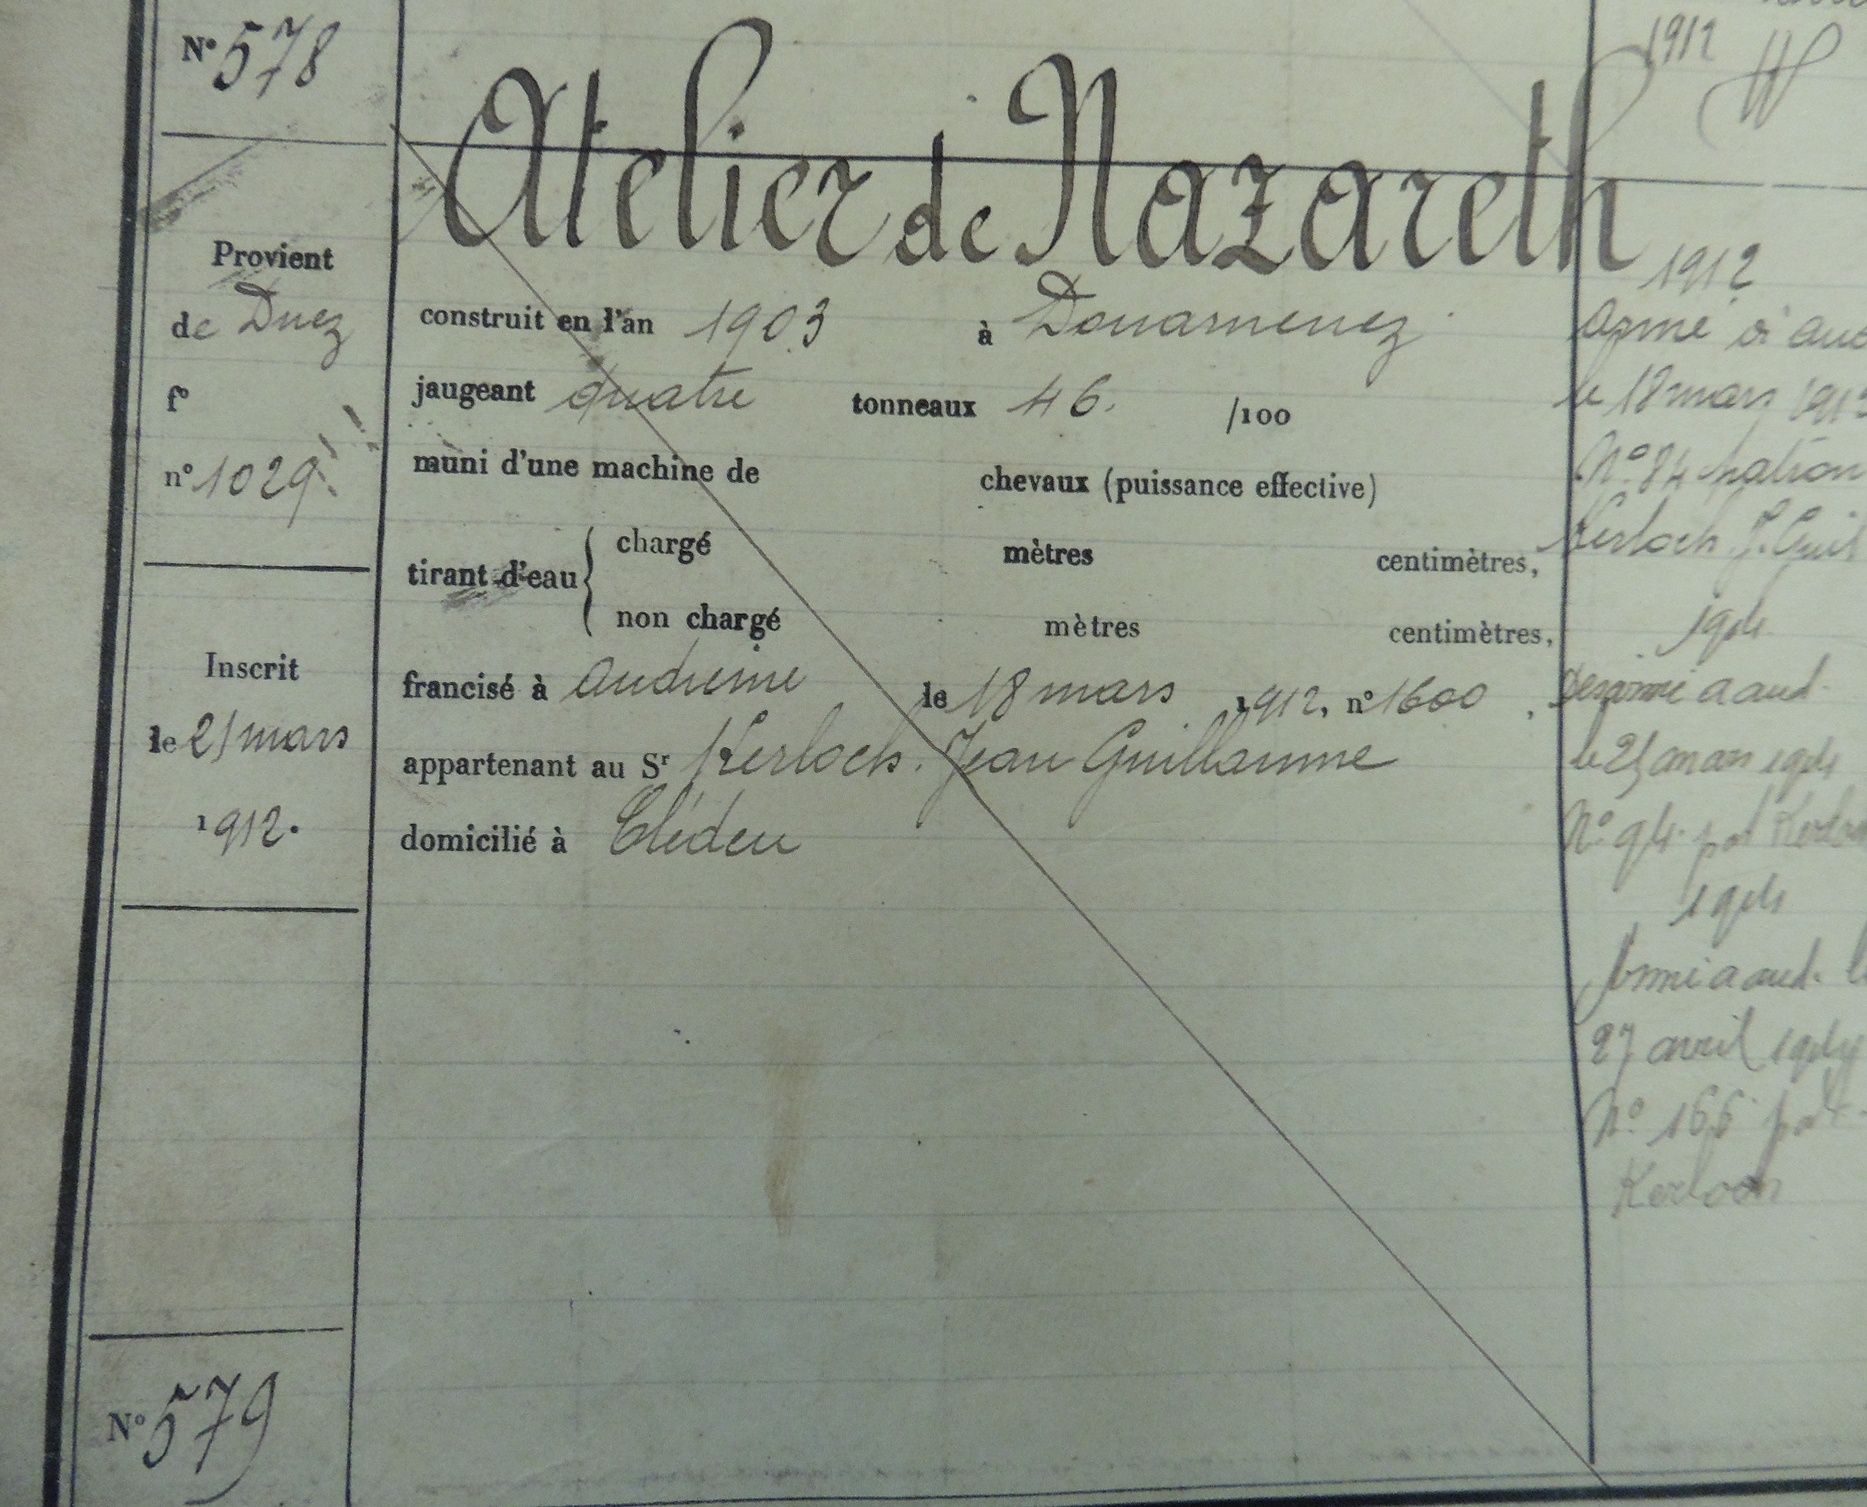 N° 578
Atelier de Nazareth
Provient
de Dnez
f°
n° 1029
Inscrit
le 21 mars
1912.
construit en l'an 1903 à Douarnenez
jaugeant quatre tonneaux 46. /100
muni d'une machine de chevaux (puissance effective)
tirant d'eau { chargé mètres centimètres,
non chargé mètres centimètres,
francisé à Audierne le 18 mars 1912, n° 1600,
appartenant au Sr Kerloch. Jean Guillaume
domicilié à Cléden
1912
1912
Armé à Aud
le 18 mars 191
N° 84 patron
Kerloch J. Guil
1914
Desarmé a aud.
le 25 mars 1914
N° 94. pat Kerlo
1914
Armé a aud. l
27 avril 1914
N° 166 pat
Kerloch
N° 579